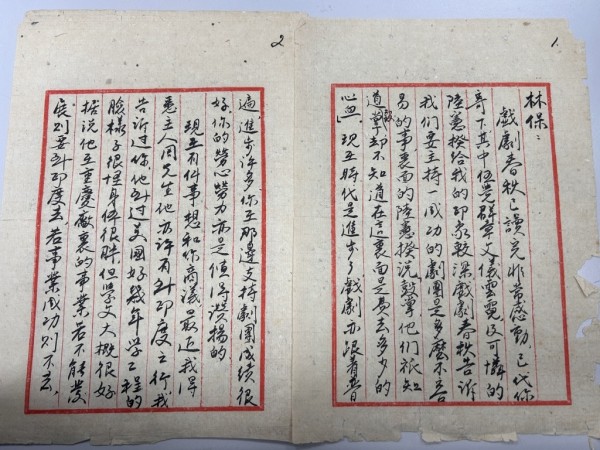 1.
林保：
戲劇春秋已讀完非常感動已代你
寄下其中伍 群 文儀雲霓及可憐的
陸憲揆給我的印象較深戲劇春秋告訴
我們要主持一成功的劇團是多麼不容
易的事裏面的陸憲揆說鼓掌他們祇知
道鼓掌却不知道在這裏面是費去多少的
心血」現在時代是進步了戲劇亦跟着普
2
遍進步許多你在那邊支持劇團成績很
好你的勞心勞力亦是值得讚揚的
現在有件事想和你商議最近我得
悉主人周先生他亦许有到印度之行我
告訴过你他到过美國好幾年学工程的
臉樣子很 身体很胖但学文大概很好
据說他在重慶廠裏的事業若不能發
展則要到印度去若事業成功則不去